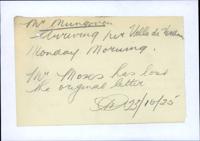 Mr Mungovan
arriving per Ville de
Monday Morning.
Mr Moses has lost
the original letter
20/10/25